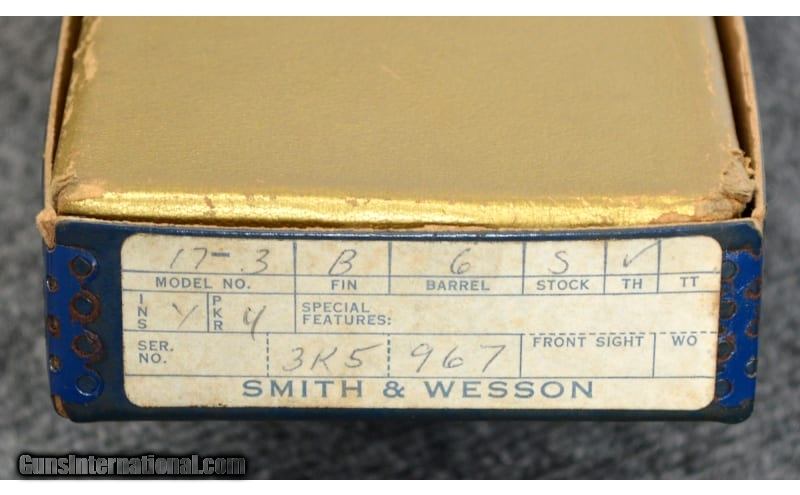 17-3 B 6 S ✓
MODEL NO. FIN BARREL STOCK TH TT
INS Y PKR 4 SPECIAL FEATURES:
SER. NO. 3K5 967 FRONT SIGHT WO
SMITH & WESSON
GunsInternational.com